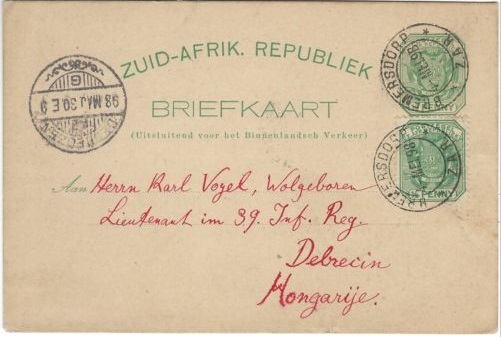 ZUID-AFRIK. REPUBLIEK
BRIEFKAART
(Uitsluitend voor het Binnenlandsch Verkeer)
Aan Herrn Karl Vogel, Wolgeboren
Lieutenant im 39. Inf. Reg.
Debrecin
Hongarije.
BREMERSDORP
Z.A.R.
BREMERSDORP
Z.A.R.
PENNY
98 MAJ 30 E 9